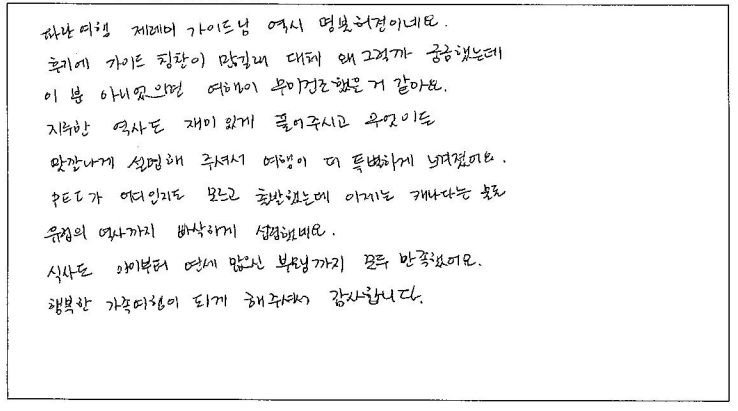 파란여행 제레미 가이드님 역시 명불허전이네요.
후기에 가이드 칭찬이 많길래 대체 왜그럴까 궁금했는데
이 분 아니었으면 여행이 무미건조했을 거 같아요.
지루한 역사도 재미있게 풀어주시고 무엇이든
맛깔나게 설명해 주셔서 여행이 더 특별하게 느껴졌어요.
PEI가 어디인지도 모르고 출발했는데 이제는 캐나다는 물론
유럽의 역사까지 빠삭하게 섭렵했네요.
식사도 아이부터 연세 많으신 부모님까지 모두 만족했어요.
행복한 가족여행이 되게 해주셔서 감사합니다.